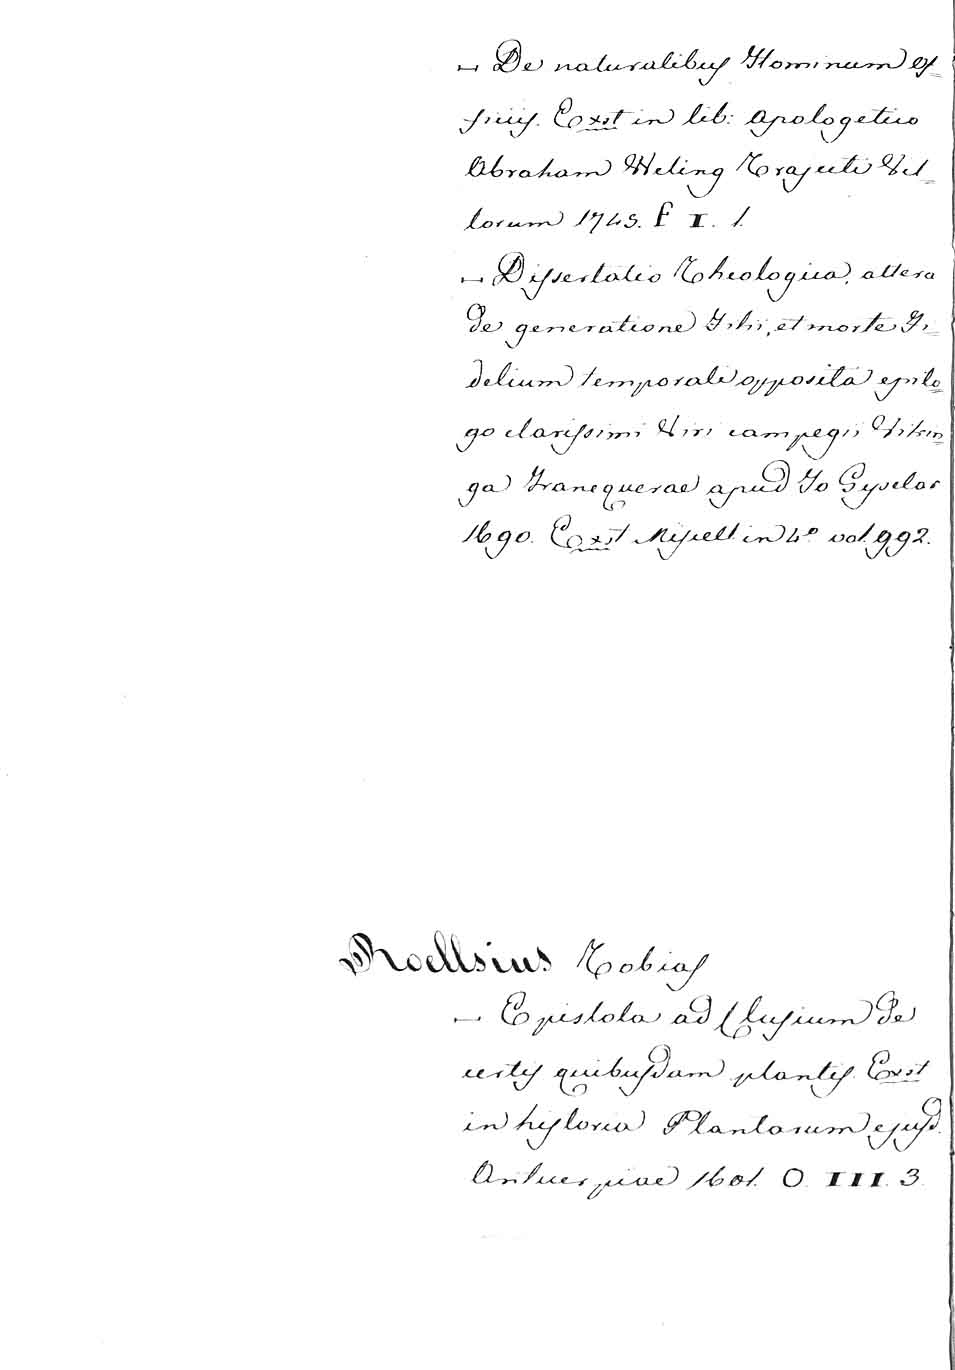 — De naturalibus Hominum of=
ficiis. Exst in lib: apologetico
Abraham Weling Trajecti Vil=
lorum 1745. f I. 1.
— Dissertatio Theologica, altera
de generatione Filii, et morte Fi=
delium temporali opposita epilo=
go clarissimi Viri campegii Vitrin=
ga Franequerae apud Jo Gyselar
1690. Exst Miscell. in 4° vol. 992.
Roellsius Tobias
— Epistola ad Clusium de
certis quibusdam plantis. Exst
in historia Plantarum ejusd.
Antuerpiae 1601. O. III. 3.